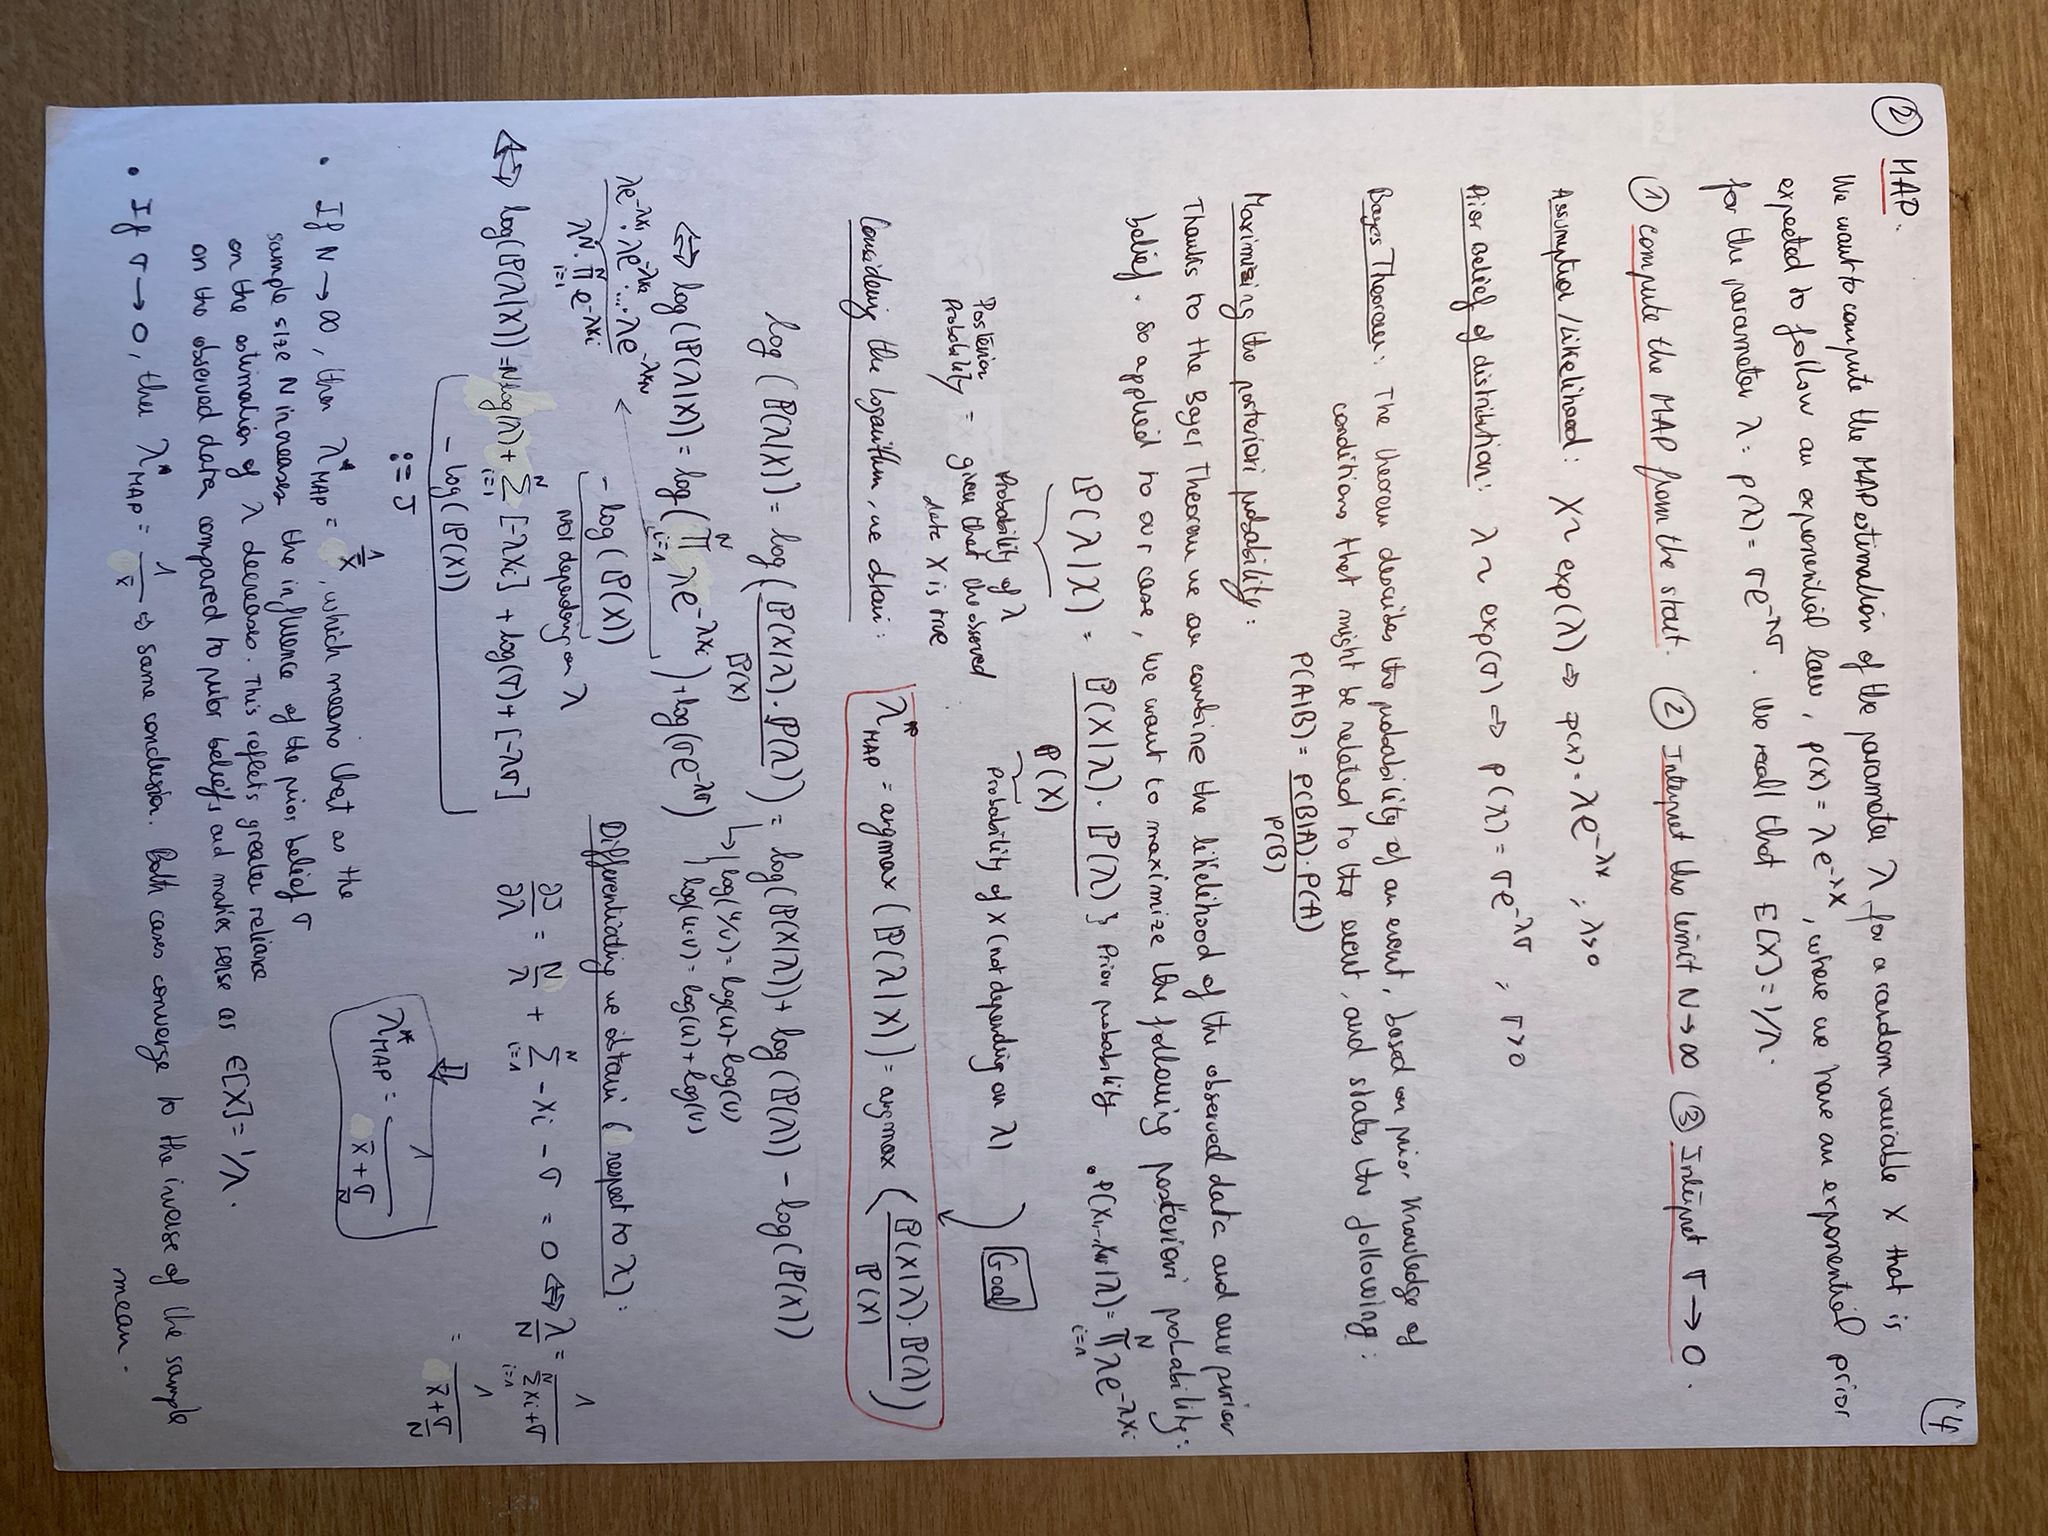 (4
② MAP.
We want to compute the MAP estimation of the parameter λ for a random variable X that is
expected to follow an exponential law, p(x) = λe^{-λx}, where we have an exponential prior
for the parameter λ: p(λ) = σe^{-λσ}. We recall that E[X] = 1/λ.
① compute the MAP from the start. ② Interpret the limit N→∞ ③ Interpret σ→0.
Assumption/Likelihood: X ~ exp(λ) ⇒ p(x) = λe^{-λx} ; λ>0
Prior Belief of distribution: λ ~ exp(σ) ⇒ p(λ) = σe^{-λσ} ; σ>0
Bayes Theorem: The theorem describes the probability of an event, based on prior knowledge of
conditions that might be related to the event, and states the following:
P(A|B) = P(B|A)·P(A) / P(B)
Maximizing the posteriori probability:
Thanks to the Bayes Theorem we can combine the likelihood of the observed data and our prior
belief. So applied to our case, we want to maximize the following posteriori probability:
ℙ(λ|X) = ℙ(X|λ)·ℙ(λ) / ℙ(X) } Prior probability • P(x₁,..,x_N|λ) = ∏_{i=1}^{N} λe^{-λxi}
Posterior Probability = Probability of λ given that the observed data X is true
Probability of X (not depending on λ)
Goal
λ*_MAP = argmax (ℙ(λ|X)) = argmax (ℙ(X|λ)·ℙ(λ) / ℙ(X))
Considering the logarithm, we obtain:
log(ℙ(λ|X)) = log(ℙ(X|λ)·ℙ(λ) / ℙ(X)) = log(ℙ(X|λ)) + log(ℙ(λ)) - log(ℙ(X))
log(u/v) = log(u) - log(v)
log(u·v) = log(u) + log(v)
⇔ log(ℙ(λ|X)) = log(∏_{i=1}^{N} λe^{-λxi}) + log(σe^{-λσ})
- log(ℙ(X))
Not depending on λ
λe^{-λx₁}·λe^{-λx₂}·...·λe^{-λx_N}
λ^N·∏_{i=1}^{N} e^{-λxi}
⇔ log(ℙ(λ|X)) = N log(λ) + ∑_{i=1}^{N} [-λxi] + log(σ) + [-λσ]
- log(ℙ(X))
:= J
Differentiating we obtain ( respect to λ):
∂J/∂λ = N/λ + ∑_{i=1}^{N} -xi - σ = 0 ⇔ λ/N = 1 / (∑_{i=1}^{N} xi + σ)
= 1 / (x̄ + σ/N)
⇓
λ*_MAP = 1 / (x̄ + σ/N)
• If N→∞, then λ*_MAP = 1/x̄, which means that as the
sample size N increases the influence of the prior belief σ
on the estimation of λ decreases. This reflects greater reliance
on the observed data compared to prior beliefs and makes sense as E[X] = 1/λ.
• If σ→0, then λ*_MAP = 1/x̄ ⇒ same conclusion. Both cases converge to the inverse of the sample
mean.